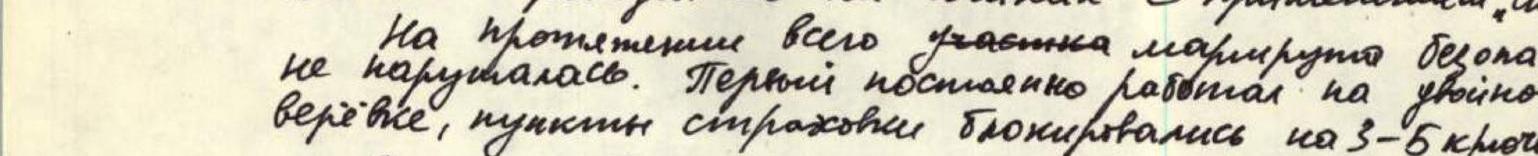 На протяжении всего участка маршрута безопа
не нарушалась. Первый постоянно работал на двойно
верёвке, пункты страховки блокировались на 3-5 крюч